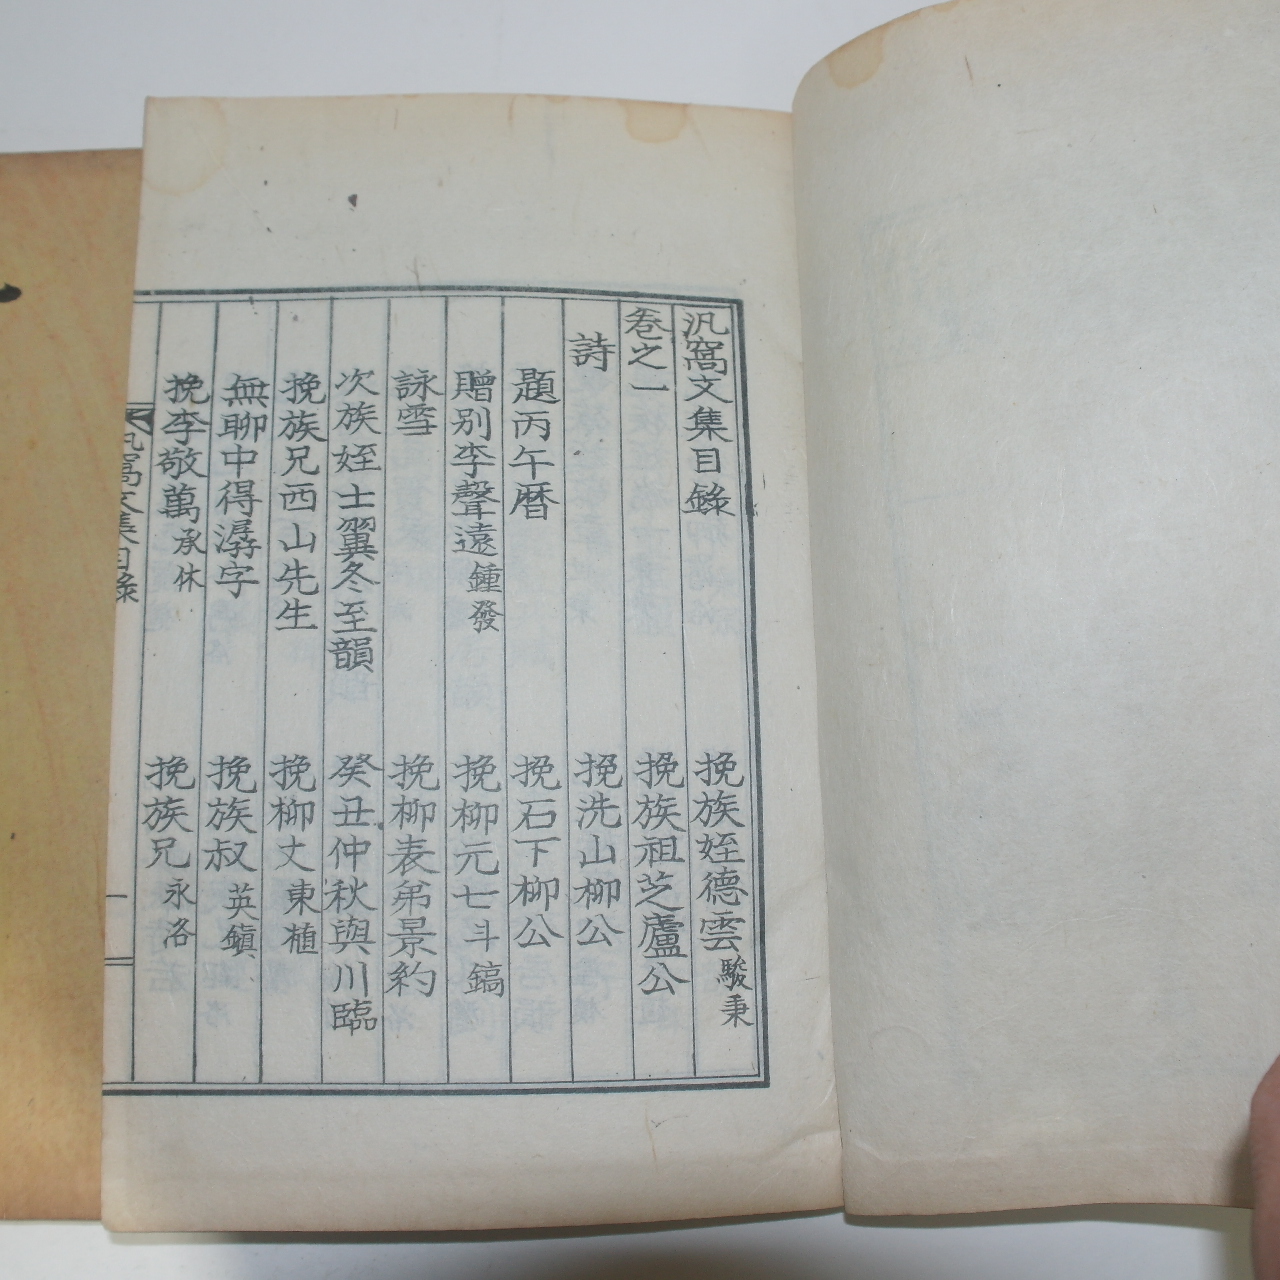 汎窩文集目錄
卷之一
詩
題丙午曆
贈別李聲遠鍾發
詠雪
次族姪士翼冬至韻
挽族兄西山先生
無聊中得潺字
挽李敬萬承休
挽族姪德雲駿秉
挽族祖芝廬公
挽洗山柳公
挽石下柳公
挽柳元七斗鎬
挽柳表弟景約
癸丑仲秋與川臨
挽柳丈東植
挽族叔英鎭
挽族兄永洛
汎窩文集目錄
一